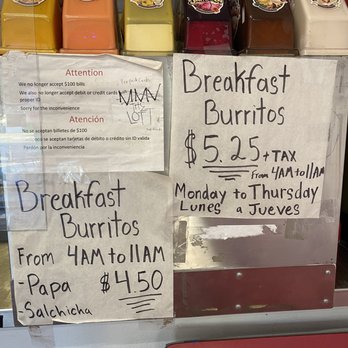 Attention
We no longer accept $100 bills
We also no longer accept debit or credit cards
proper ID
Sorry for the inconvenience
Atención
No se aceptan billetes de $100
se aceptan tarjetas de debito o crédito sin ID valida
Perdón por la inconveniencia
Breakfast
Burritos
$5.25 + TAX
From 4AM to 11AM
Monday to Thursday
Lunes a Jueves
Breakfast
Burritos
From 4AM to 11AM
-Papa $4.50
-Salchicha